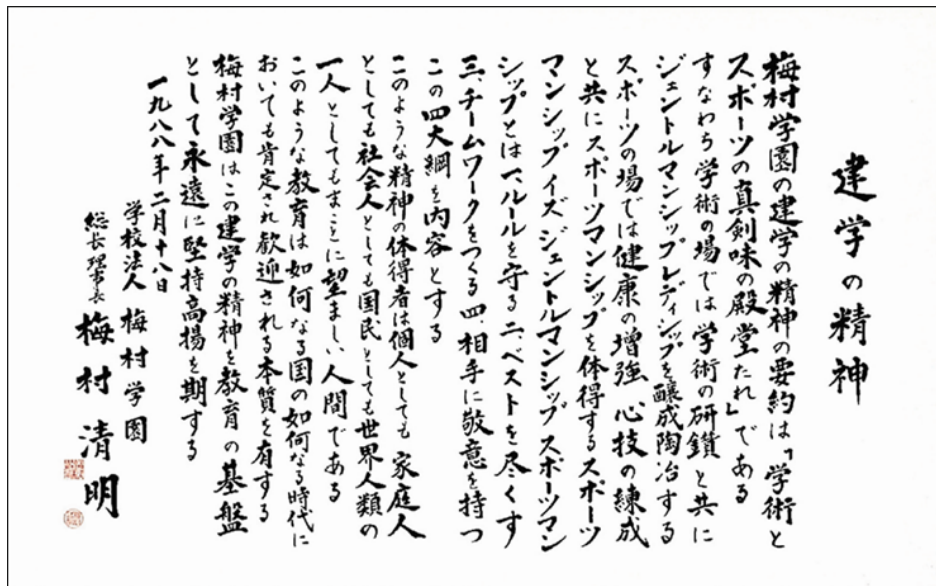 建学の精神
梅村学園の建学の精神の要約は「学術と
スポーツの真剣味の殿堂たれ」である
すなわち学術の場では学術の研鑽と共に
ジェントルマンシップレディシップを醸成陶冶する
スポーツの場では健康の増強、心技の練成
と共にスポーツマンシップを体得するスポーツ
マンシップイズジェントルマンシップスポーツマン
シップとは一、ルールを守る二、ベストを尽くす
三、チームワークをつくる四、相手に敬意を持つ
この四大綱を内容とする
このような精神の体得者は個人としても家庭人
としても社会人としても国民としても世界人類の
一人としてもまことに望ましい人間である
このような教育は如何なる国の如何なる時代に
おいても肯定され歓迎される本質を有する
梅村学園はこの建学の精神を教育の基盤
として永遠に堅持高揚を期する
一九八八年二月十八日
学校法人 梅村学園
総長理事長 梅村清明